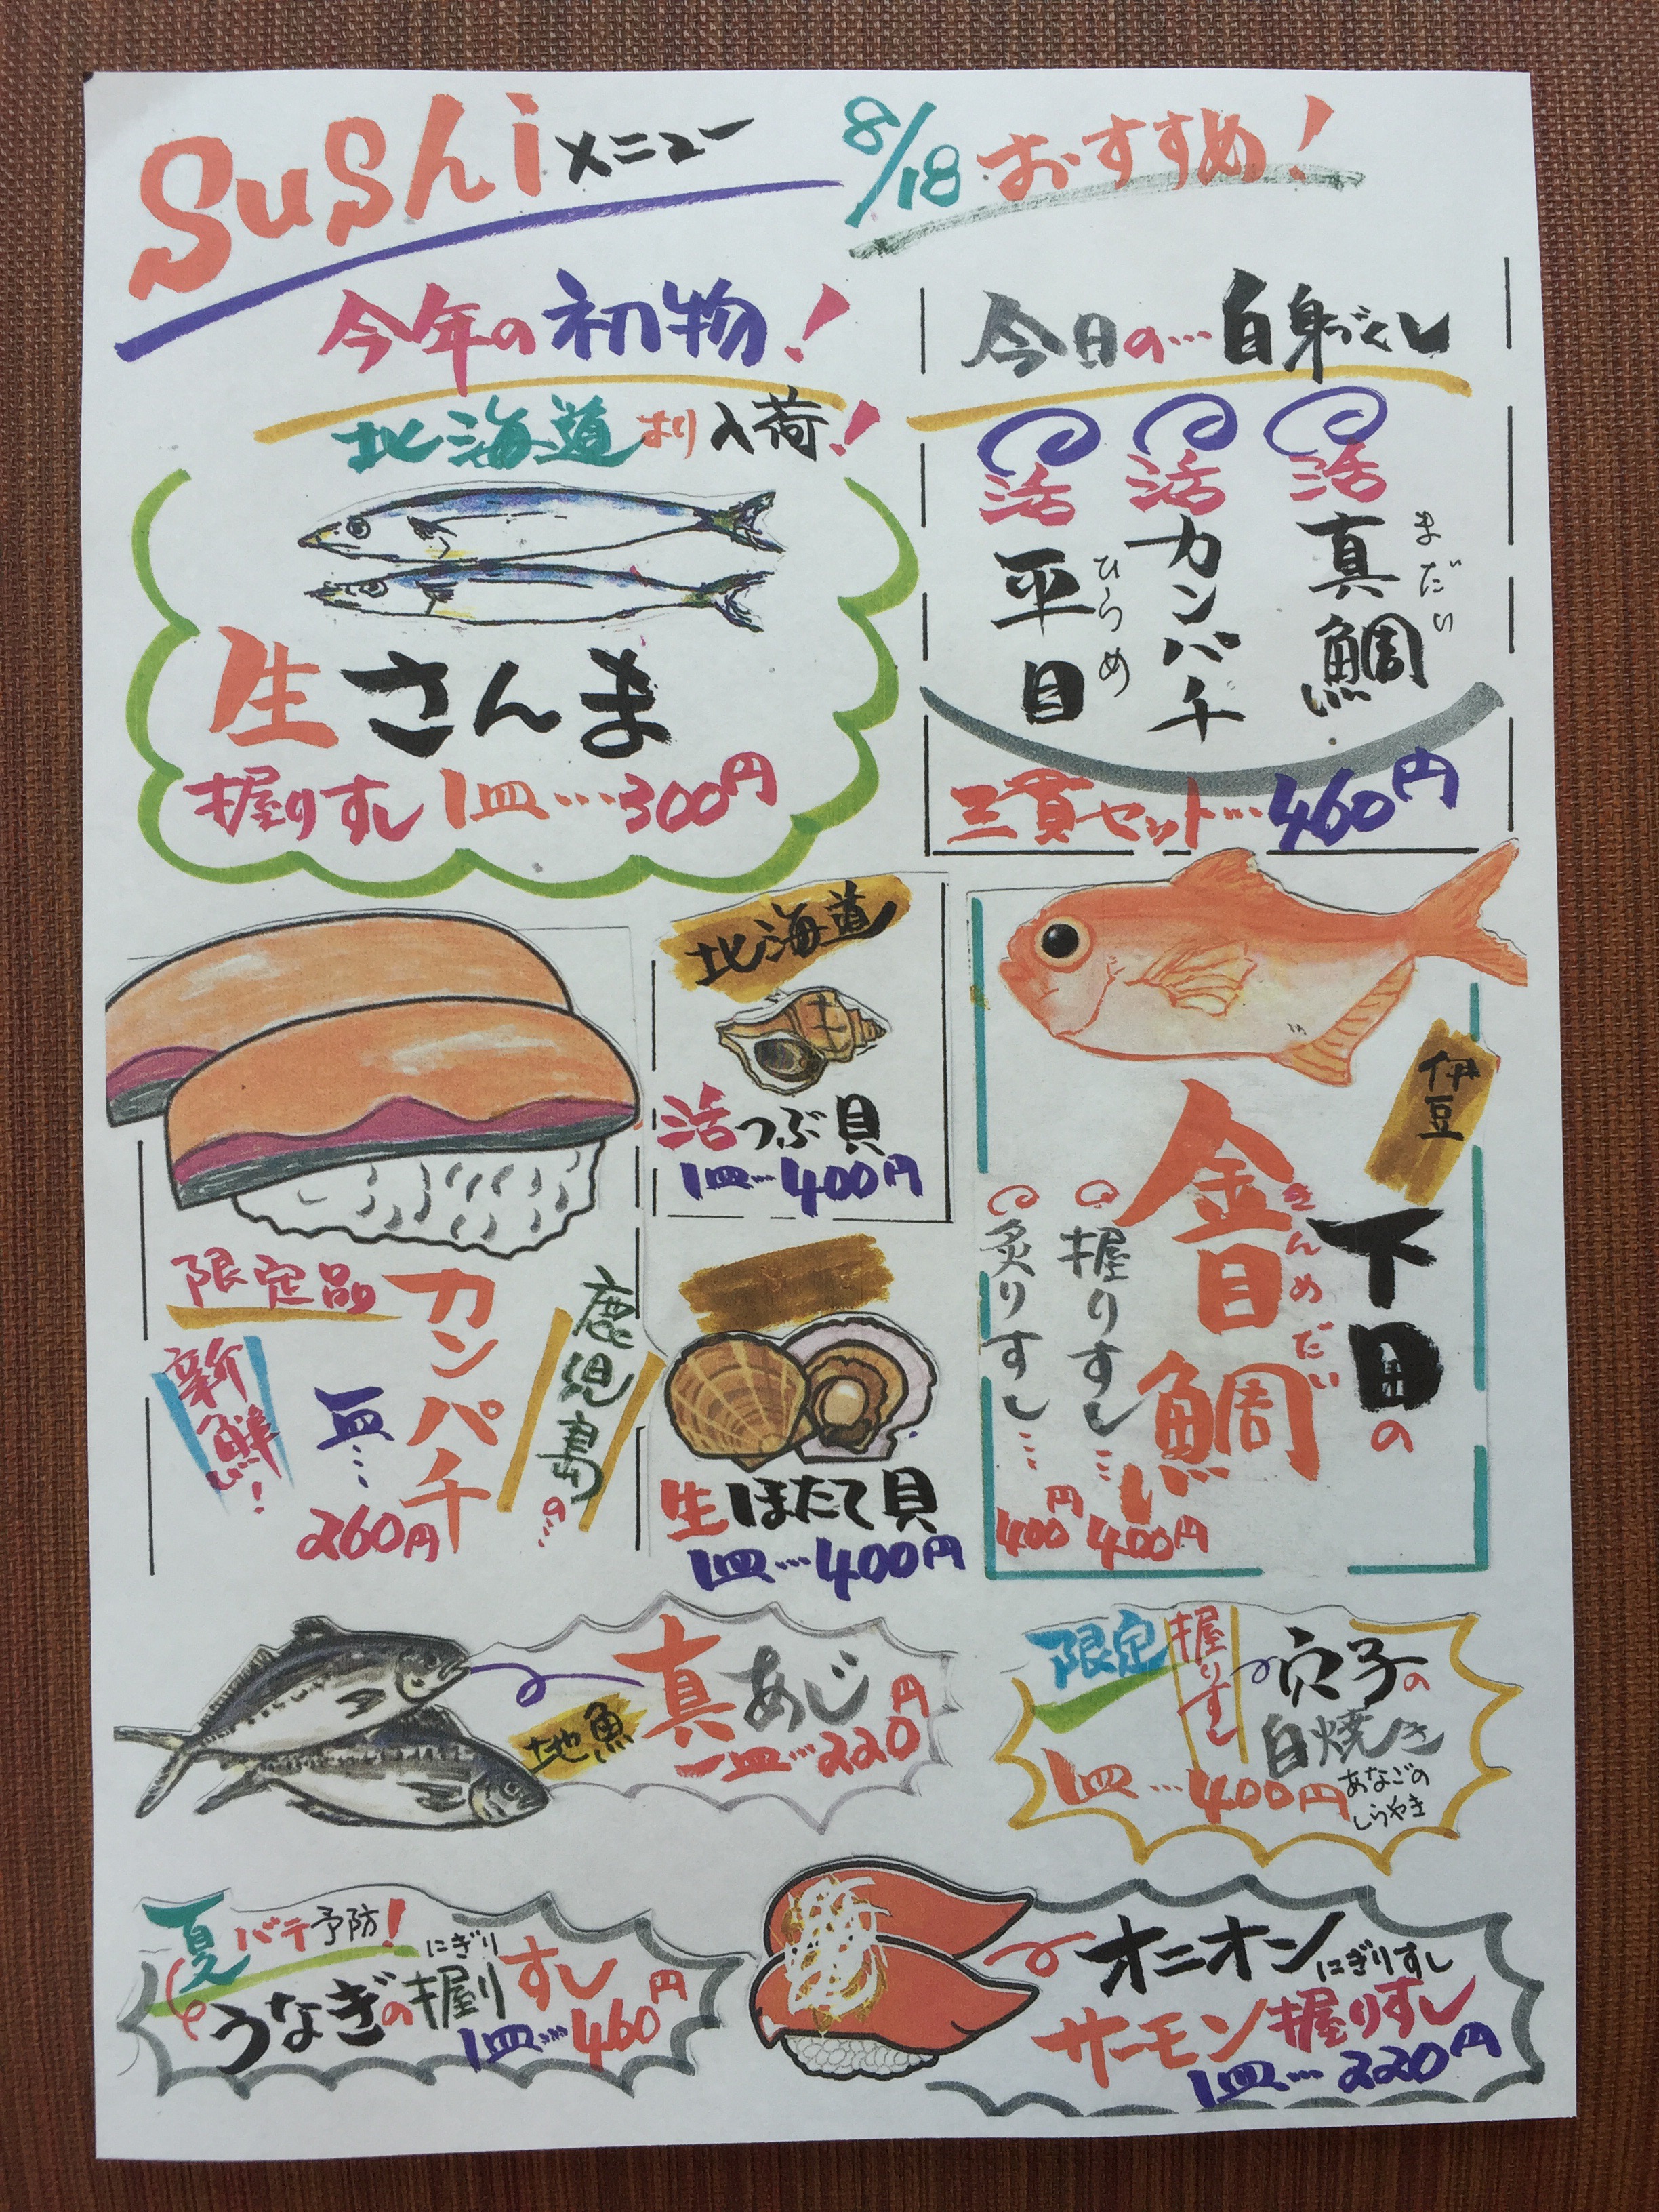 Sushi メニュー
8/18 おすすめ!
今年の初物!
北海道より入荷!
生さんま
握りすし 1皿…300円
今日の…白身づくし
活真鯛
まだい
活カンパチ
活平目
ひらめ
三貫セット…460円
限定品
新鮮!
鹿児島の…
カンパチ
一皿…
260円
北海道
活つぶ貝
1皿…400円
生ほたて貝
1皿…400円
伊豆
下田の
金目鯛
きんめだい
握りすし…400円
炙りすし…400円
地魚
真あじ
一皿…220円
限定
握りすし
穴子の
白焼き
あなごの
しらやき
1皿…400円
夏バテ予防!
にぎり
うなぎの握りすし
1皿…460円
オニオン
にぎりすし
サーモン握りすし
1皿…220円